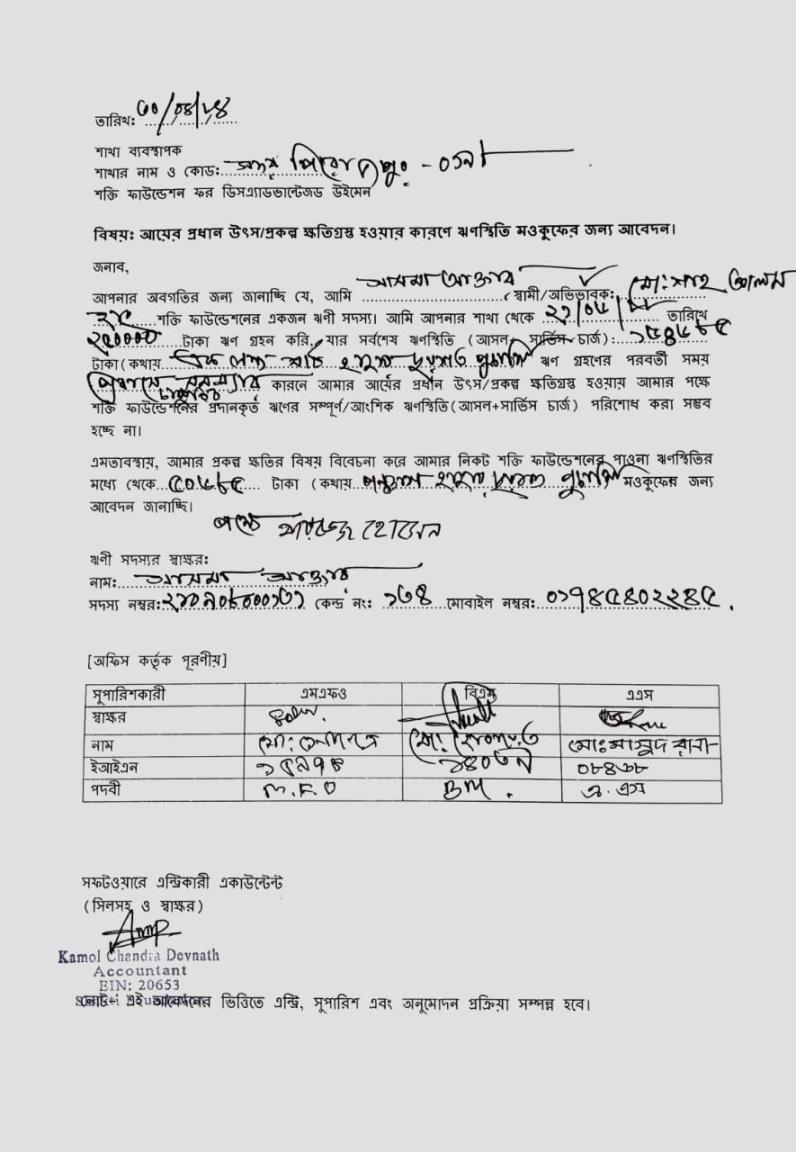 তারিখঃ ৩০/০৪/২৪
শাখা ব্যবস্থাপক
শাখার নাম ও কোড: সদর পিরোজপুর - ০১৯
শক্তি ফাউন্ডেশন ফর ডিসএ্যাডভান্টেজড উইমেন
বিষয়ঃ আয়ের প্রধান উৎস/প্রকল্প ক্ষতিগ্রস্থ হওয়ার কারণে ঋণস্থিতি মওকুফের জন্য আবেদন।
জনাব,
আপনার অবগতির জন্য জানাচ্ছি যে, আমি আসমা আক্তার (স্বামী/অভিভাবক: মো:শাহ আলম
শক্তি ফাউন্ডেশনের একজন ঋণী সদস্য। আমি আপনার শাখা থেকে তারিখে
২০০০০০ টাকা ঋণ গ্রহন করি, যার সর্বশেষ ঋণস্থিতি (আসল+সার্ভিস চার্জ):
টাকা(কথায় এক লক্ষ হাজার দুইশত পঁচাশি ঋণ গ্রহণের পরবর্তী সময়
কারনে আমার আয়ের প্রধান উৎস/প্রকল্প ক্ষতিগ্রস্থ হওয়ায় আমার পক্ষে
শক্তি ফাউন্ডেশনের প্রদানকৃত ঋণের সম্পূর্ণ/আংশিক ঋণস্থিতি(আসল+সার্ভিস চার্জ) পরিশোধ করা সম্ভব
হচ্ছে না।
এমতাবস্থায়, আমার প্রকল্প ক্ষতির বিষয় বিবেচনা করে আমার নিকট শক্তি ফাউন্ডেশনের পাওনা ঋণস্থিতির
মধ্যে থেকে টাকা (কথায় হাজার দুইশত পঁচাশি মওকুফের জন্য
আবেদন জানাচ্ছি।
পক্ষে হোসেন
ঋণী সদস্যর স্বাক্ষর:
নাম: আসমা আক্তার
সদস্য নম্বর: কেন্দ্র নং: ১৩৪ মোবাইল নম্বর: ০১৭৪৫৪০২২৪৫.
[অফিস কর্তৃক পূরণীয়]
সুপারিশকারী এমএফও বিএম এএস
স্বাক্ষর
নাম মো: মো: মোঃমাসুদ রানা
ইআইএন ১৫৯৭৪ ১৪০৩৭ ০৮৪৩৮
পদবী M.F.O BM. এ.এস
সফটওয়ারে এন্ট্রিকারী একাউন্টেন্ট
(সিলসহ ও স্বাক্ষর)
Kamol Chandra Devnath
Accountant
EIN: 20653
নোটঃ এই আবেদনের ভিত্তিতে এন্ট্রি, সুপারিশ এবং অনুমোদন প্রক্রিয়া সম্পন্ন হবে।